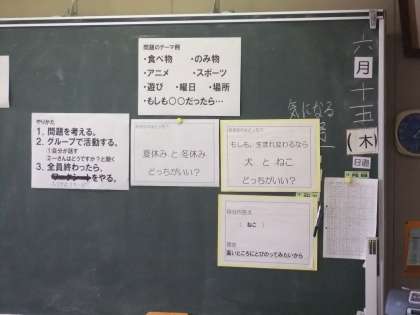 問題のテーマ例
・食べ物　・のみ物
・アニメ　・スポーツ
・遊び　・曜日　・場所
・もしも〇〇だったら…
六月十五
(木)
日直
気になる
やりかた
1. 問題を考える。
2. グループで活動する。
①自分が話す
②ーさんはどうですか？と聞く
3. 全員終わったら、
をやる。
夏休み と 冬休み
どっちがいい？
もしも、生まれ変わるなら
犬 と ねこ
どっちがいい？
自分の答え
( ねこ )
理由
高いところにとびのってみたいから